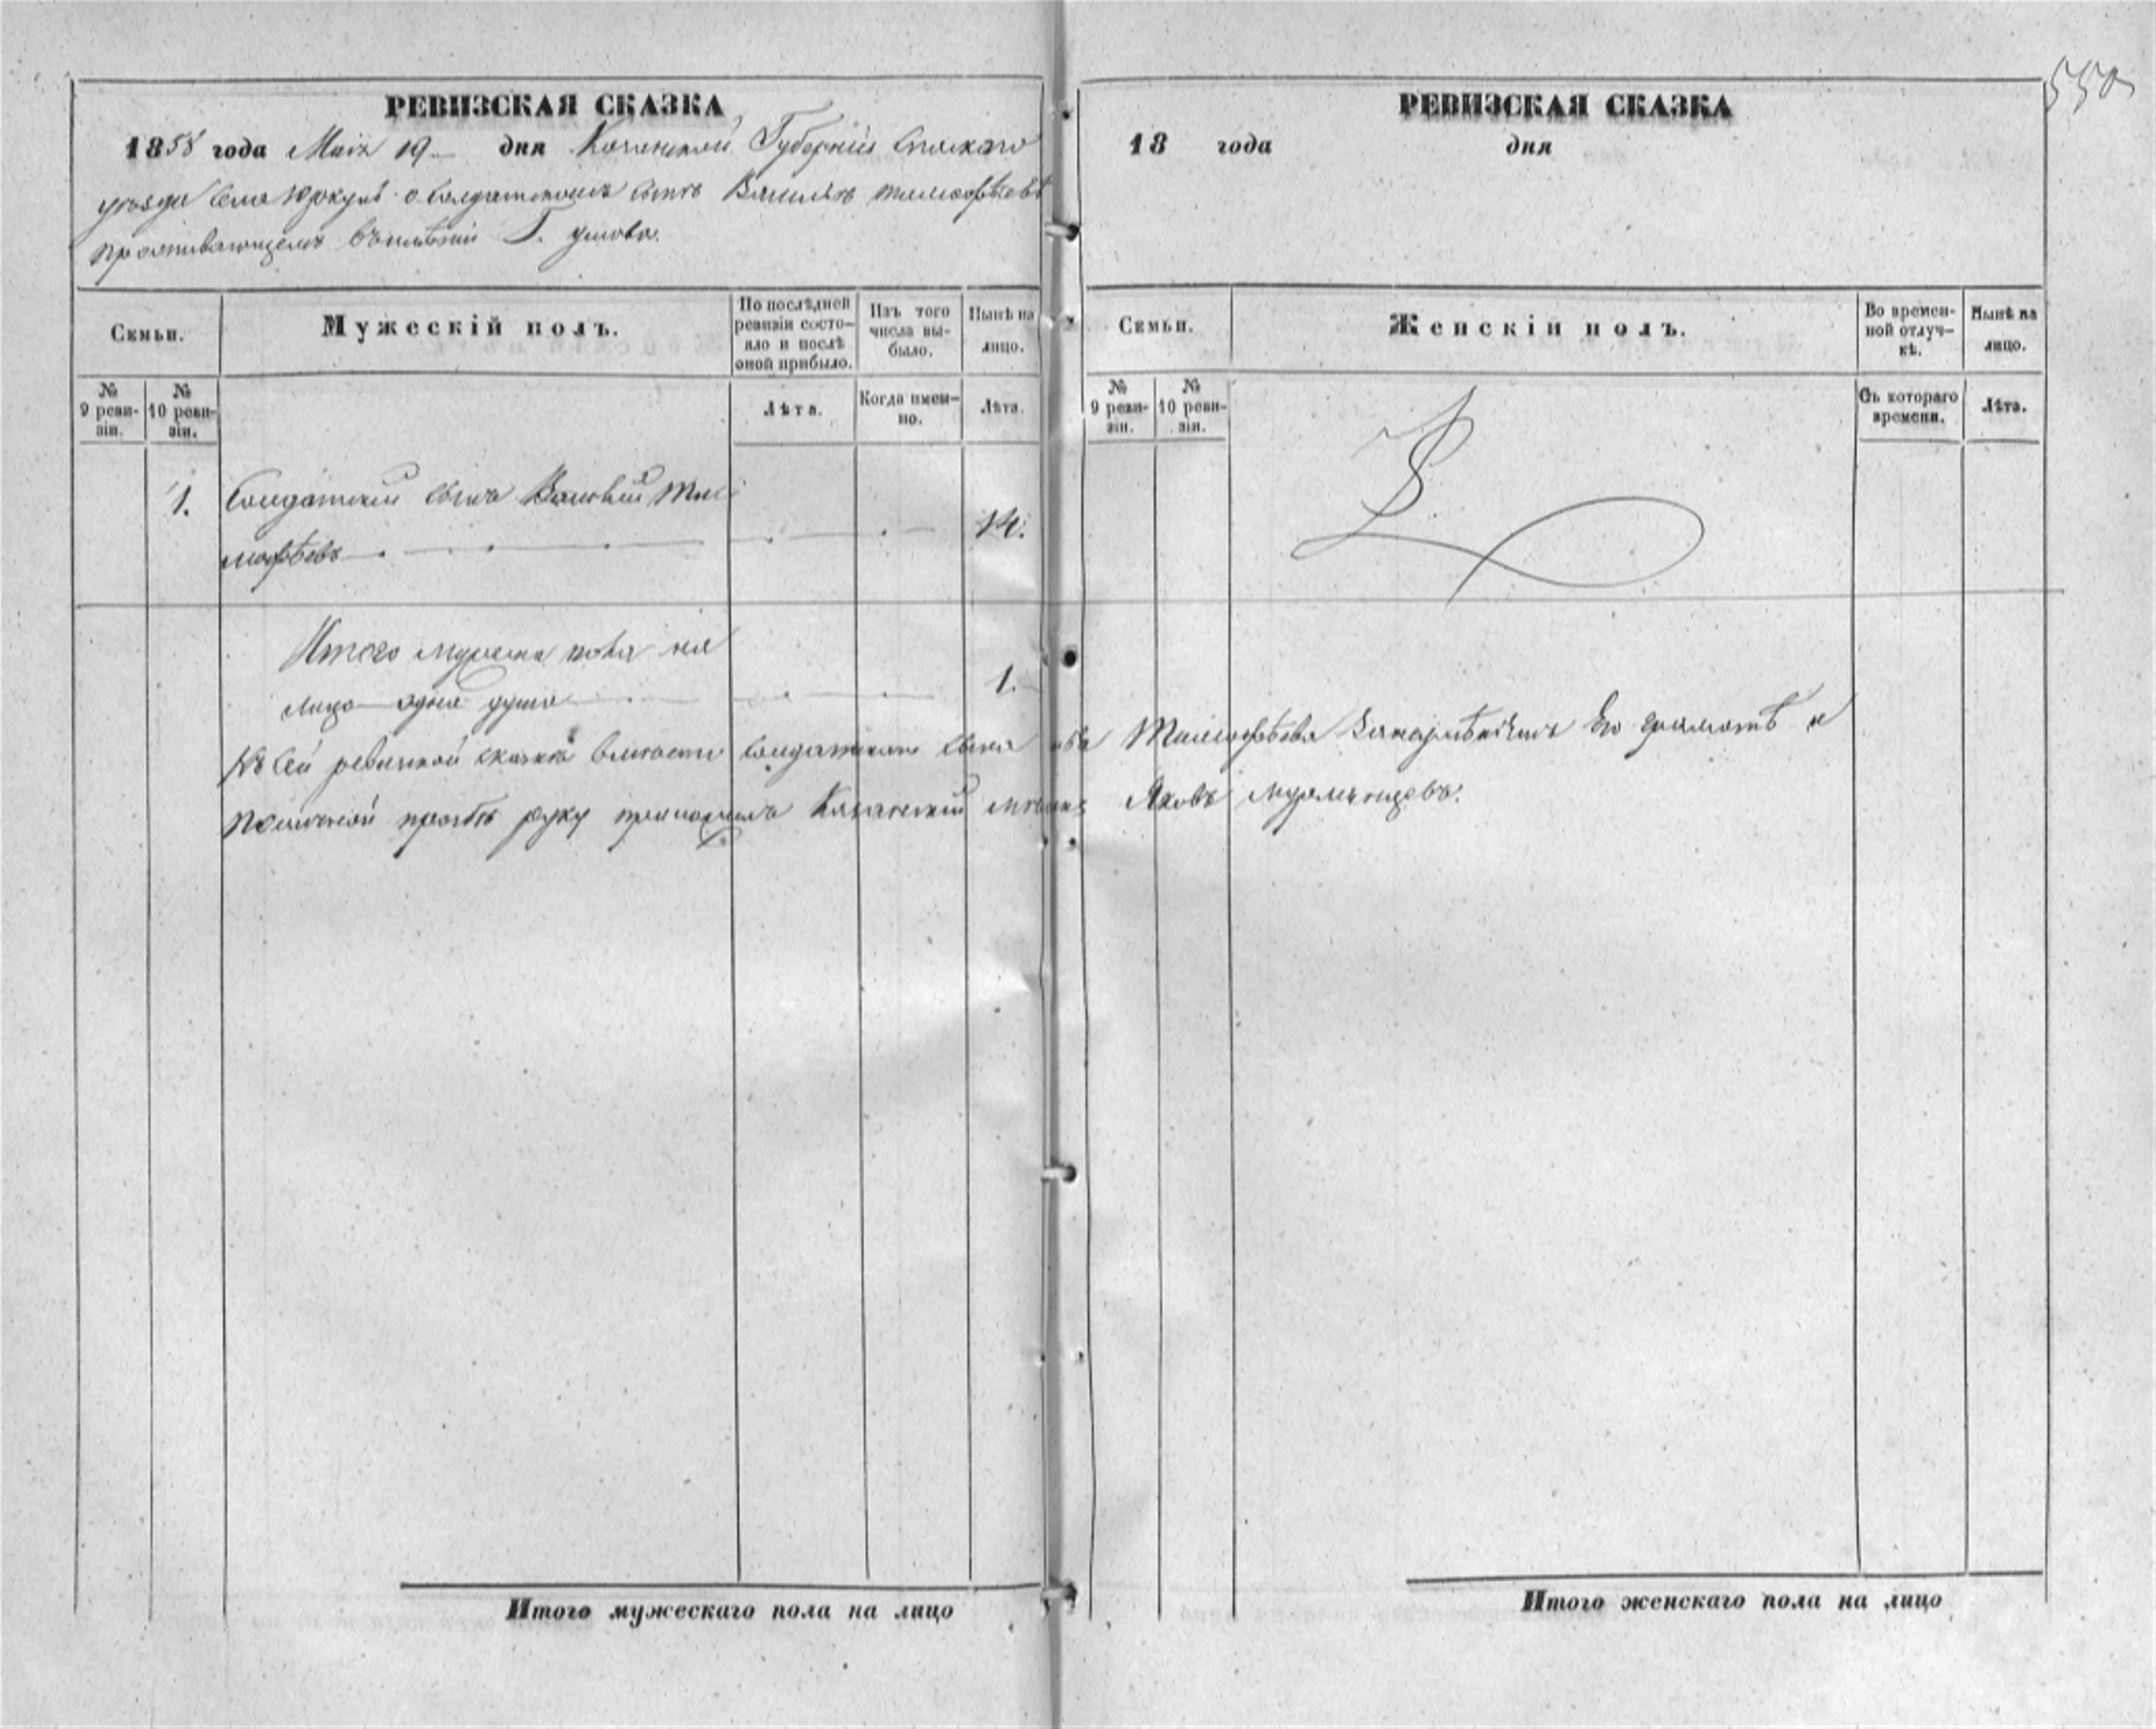 РЕВИЗСКАЯ СКАЗКА
1858 года Маія 19 дня Казанской Губерніи Спаскаго
уезда Села Юркуль о Солдатскомъ сыне Василье Тимофѣевѣ
проживающемъ въ имѣніи Г.
Семьи.
Мужескій полъ.
По послѣдней ревизіи состо-
яло и послѣ
оной прибыло.
Изъ того
числа вы-
было.
Нынѣ на
лицо.
№
9 реви-
зіи.
№
10 реви-
зіи.
Лѣта.
Когда имен-
но.
Лѣта.
1. Солдатский сынъ Василий Тим 14.
мофѣевъ
Итого мужска пола на
лицо одна душа 1.
Къ сей ревизской сказке вместо солдатскаго сына
по личной прозьбе руку приложилъ Казанский
Итого мужескаго пола на лицо
550
РЕВИЗСКАЯ СКАЗКА
18 года дня
Семьи.
Женскій полъ.
Во времен-
ной отлуч-
кѣ.
Нынѣ на
лицо.
№
9 реви-
зіи.
№
10 реви-
зіи.
Съ котораго
времени.
Лѣта.
Тимофѣева Его грамотѣ
Яковъ
Итого женскаго пола на лицо